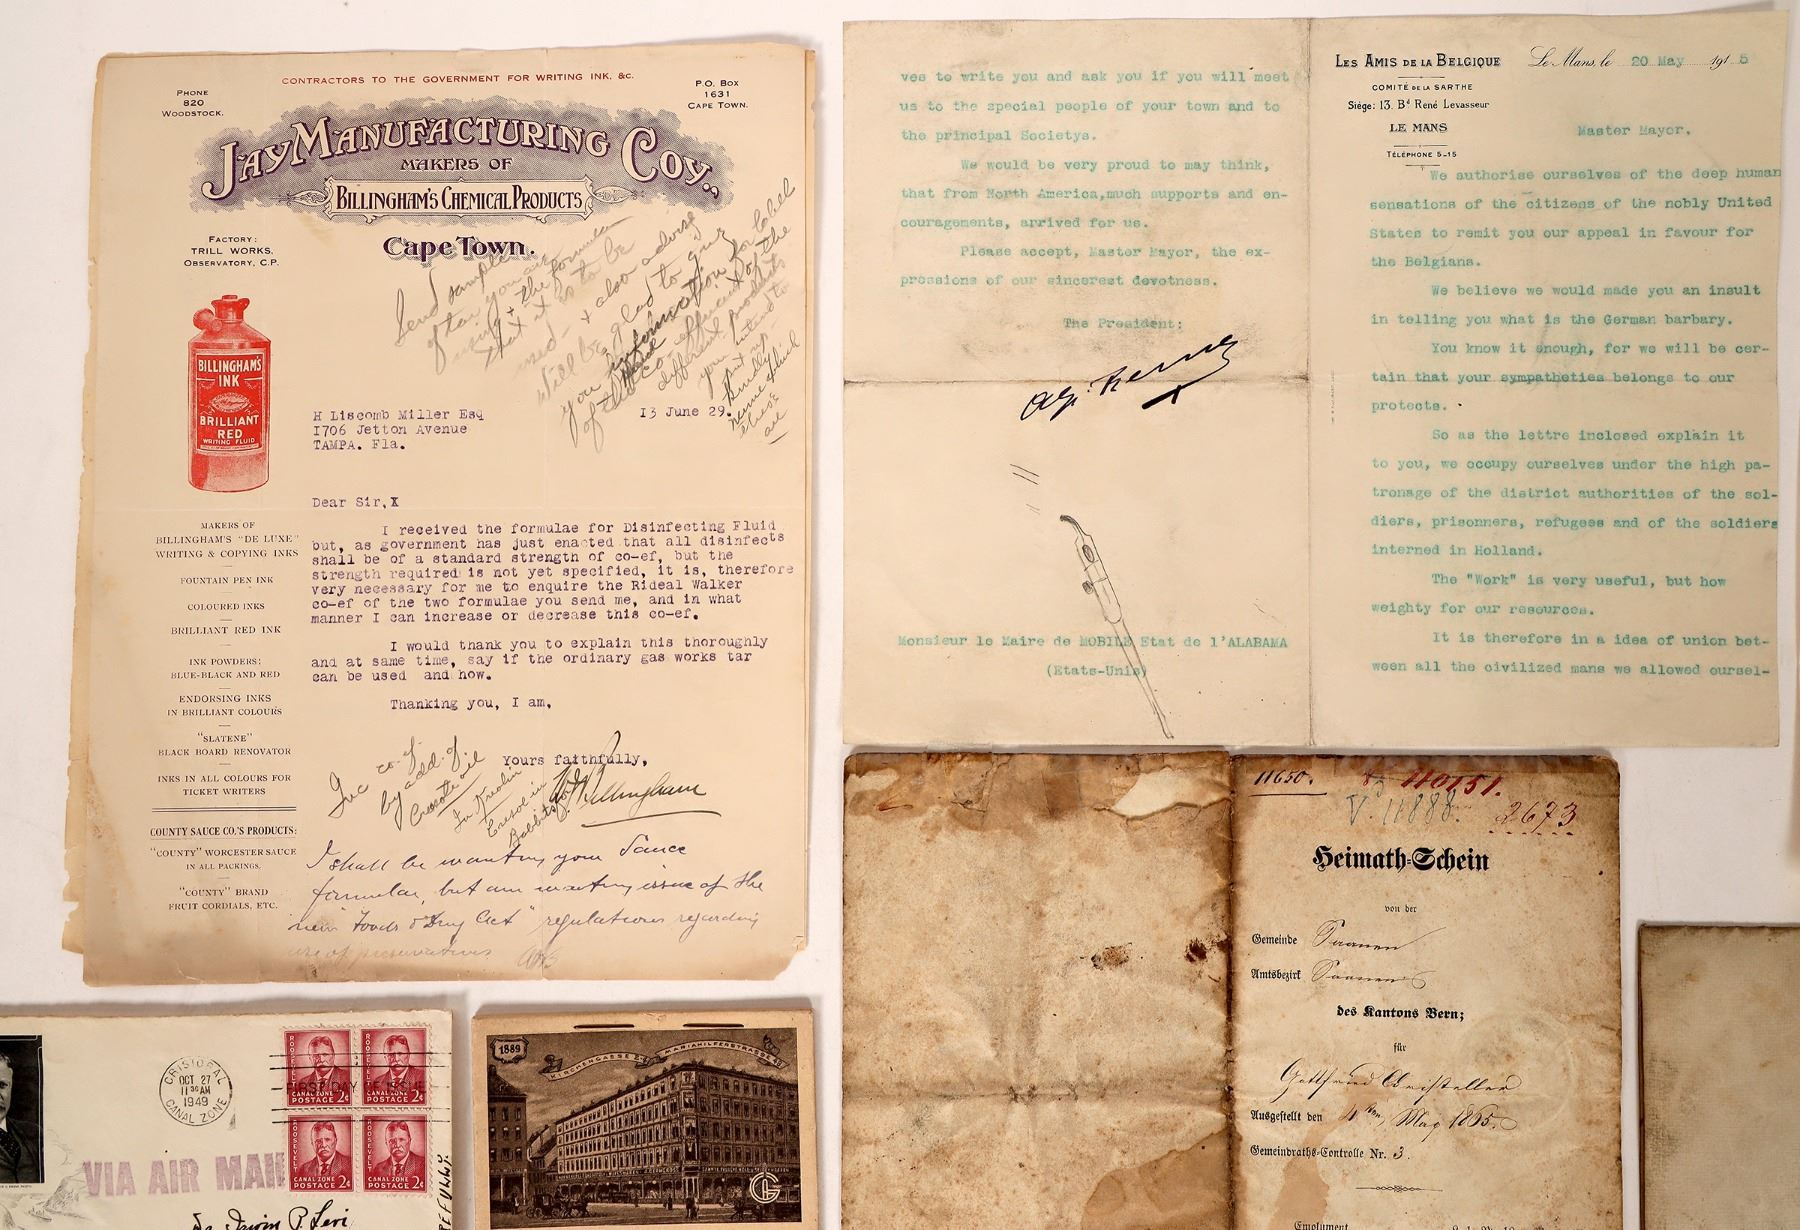 CONTRACTORS TO THE GOVERNMENT FOR WRITING INK, &c.
PHONE
820
WOODSTOCK.
P.O. BOX
1631
CAPE TOWN.
JAY MANUFACTURING COY.,
MAKERS OF
BILLINGHAM'S CHEMICAL PRODUCTS
Cape Town.
FACTORY:
TRILL WORKS,
OBSERVATORY, C.P.
BILLINGHAM'S
INK
BRILLIANT
RED
WRITING FLUID
Send sample
of tar you are
using & the formulae
that it is to be
used - & also advise
Will be glad to give
you information for label
of the co-efficient of the
different products
you intend to
put up
Kindly find
name
are
H Liscomb Miller Esq
1706 Jetton Avenue
TAMPA. Fla.
13 June 29.
Dear Sir,X
I received the formulae for Disinfecting Fluid
but, as government has just enacted that all disinfects
shall be of a standard strength of co-ef, but the
strength required is not yet specified, it is, therefore
very necessary for me to enquire the Rideal Walker
co-ef of the two formulae you send me, and in what
manner I can increase or decrease this co-ef.
I would thank you to explain this thoroughly
and at same time, say if the ordinary gas works tar
can be used and how.
Thanking you, I am,
Yours faithfully,
Billingham
Inc co. ef
by add. of
Creosote oil
In Kreolin
Cresol in
I shall be wanting your Sauce
formulae, but am waiting issue of the
new "Foods & Drug Act" regulations regarding
use of preservatives
MAKERS OF
BILLINGHAM'S "DE LUXE"
WRITING & COPYING INKS
FOUNTAIN PEN INK
COLOURED INKS
BRILLIANT RED INK
INK POWDERS:
BLUE-BLACK AND RED
ENDORSING INKS
IN BRILLIANT COLOURS
"SLATENE"
BLACK BOARD RENOVATOR
INKS IN ALL COLOURS FOR
TICKET WRITERS
COUNTY SAUCE CO.'S PRODUCTS:
"COUNTY" WORCESTER SAUCE
IN ALL PACKINGS.
"COUNTY" BRAND
FRUIT CORDIALS, ETC.
ves to write you and ask you if you will meet
us to the special people of your town and to
the principal Societys.
We would be very proud to may think,
that from North America,much supports and en-
couragements, arrived for us.
Please accept, Master Mayor, the ex-
pressions of our sincerest devotness.
The President:
Monsieur le Maire de MOBILE Etat de l'ALABAMA
(Etats-Unis)
LES AMIS DE LA BELGIQUE
COMITÉ DE LA SARTHE
Siège: 13, Bd René Levasseur
LE MANS
TÉLÉPHONE 5-15
Le Mans, le 20 May 1915
Master Mayor,
We authorise ourselves of the deep human
sensations of the citizens of the nobly United
States to remit you our appeal in favour for
the Belgians.
We believe we would made you an insult
in telling you what is the German barbary.
You know it enough, for we will be cer-
tain that your sympatheties belongs to our
protects.
So as the lettre inclosed explain it
to you, we occupy ourselves under the high pa-
tronage of the district authorities of the sol-
diers, prisonners, refugees and of the soldiers
interned in Holland.
The "Work" is very useful, but how
weighty for our resources.
It is therefore in a idea of union bet-
ween all the civilized mans we allowed oursel-
CRISTOBAL
OCT 27
11 30 AM
1949
CANAL ZONE
FIRST DAY OF ISSUE
ROOSEVELT
CANAL ZONE
POSTAGE 2¢
ROOSEVELT
CANAL ZONE
POSTAGE 2¢
ROOSEVELT
CANAL ZONE
POSTAGE 2¢
ROOSEVELT
CANAL ZONE
POSTAGE 2¢
VIA AIR MAIL
Irwin P. Levi
1889
KIRCHENGASSE 2
MARIAHILFERSTRASSE
11650.
40151.
V. 11888.
2673
Heimath-Schein
von der
Gemeinde Saanen
Amtsbezirk Saanen
des Kantons Bern;
für
Gottfried Christeller
Ausgestellt den 4ten May 1865.
Gemeindraths-Controlle Nr. 3.
Emolument